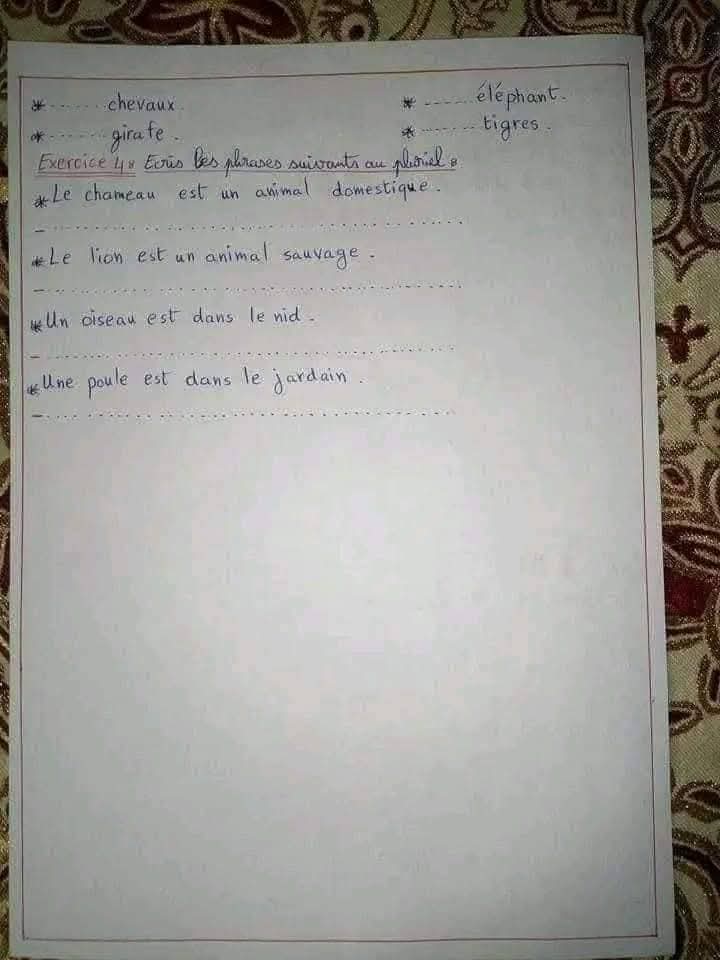 * ...... chevaux. * ...... éléphant.
* ....... girafe. * ....... tigres.
Exercice 4: Ecris les phrases suivants au pluriel:
* Le chameau est un animal domestique.
- ................................................
* Le lion est un animal sauvage.
- ................................................
* Un oiseau est dans le nid.
- ................................................
* Une poule est dans le jardain.
- ................................................